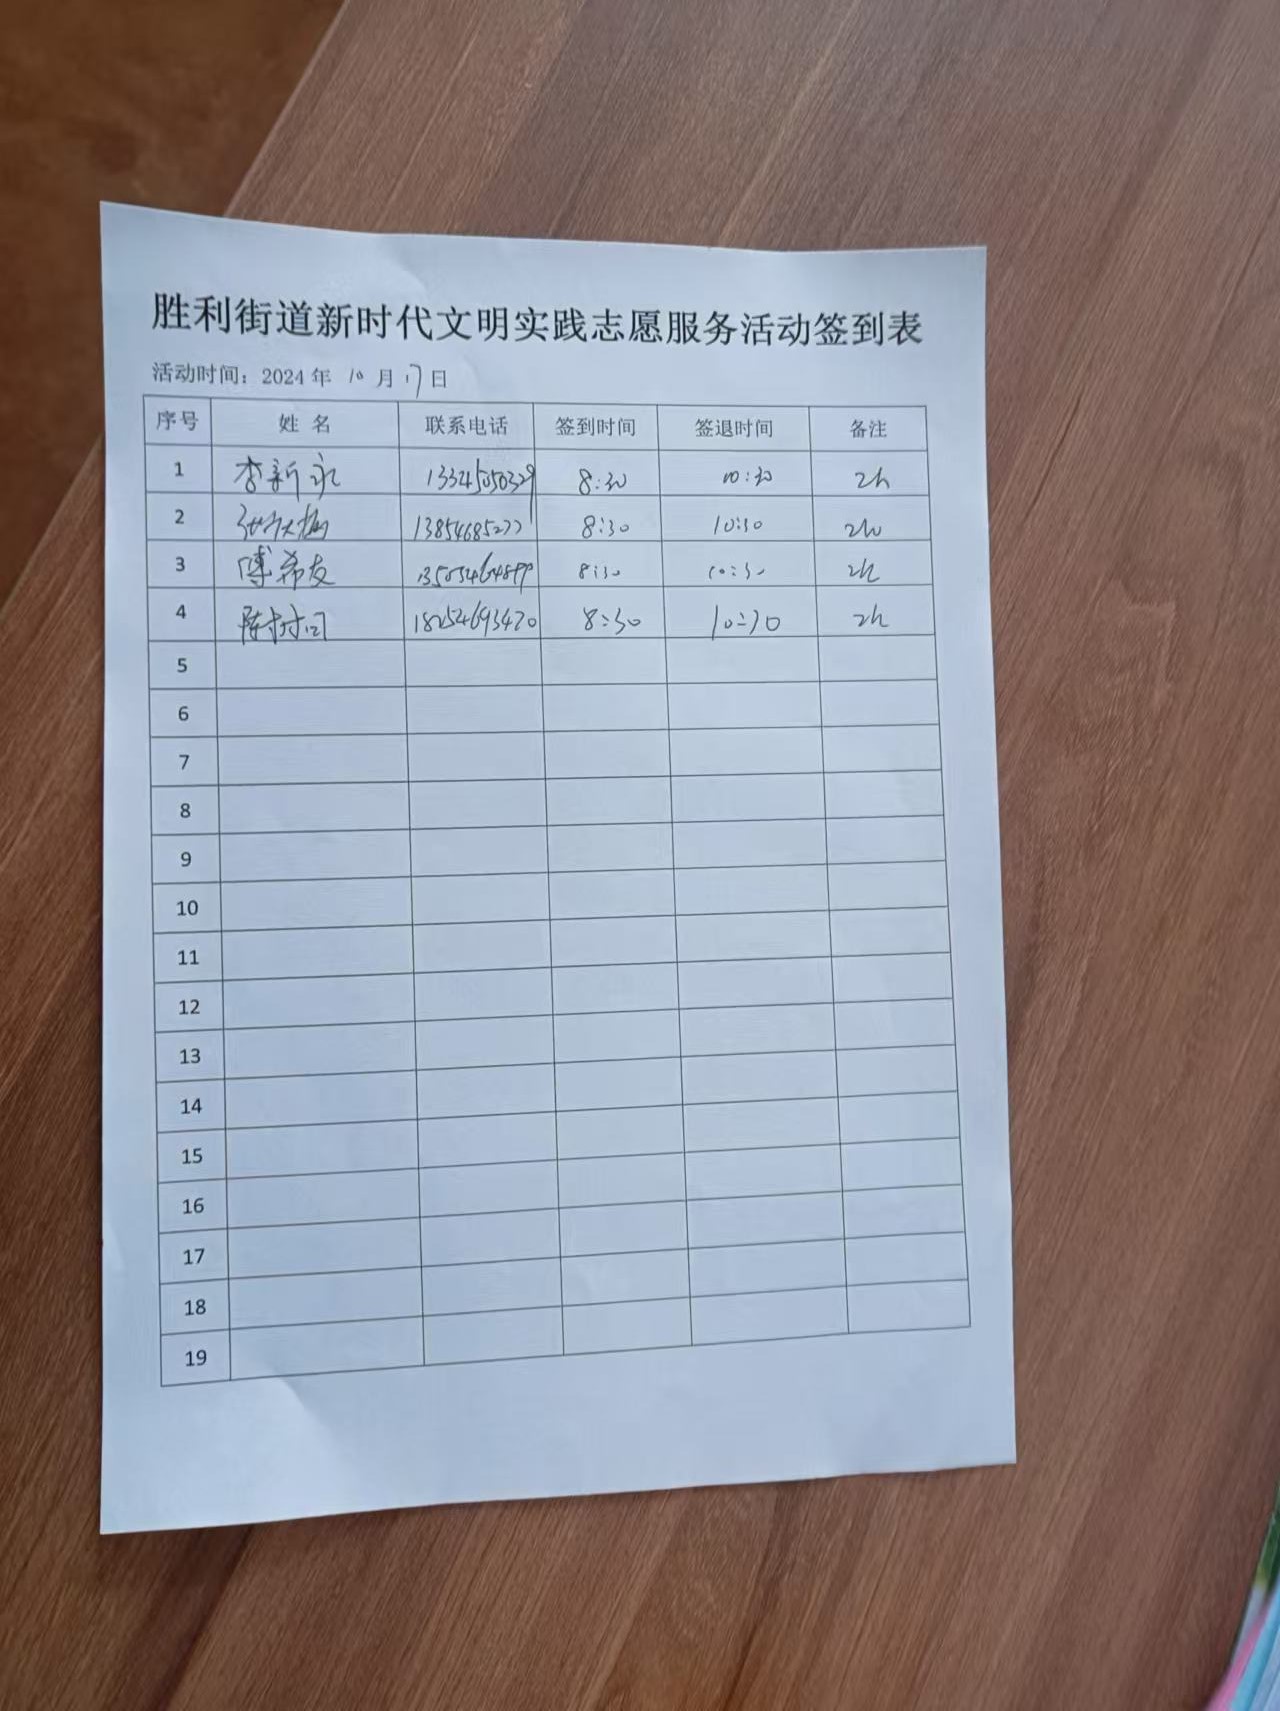 胜利街道新时代文明实践志愿服务活动签到表
活动时间：2024年 10 月 17 日
序号 姓 名 联系电话 签到时间 签退时间 备注
1 李新永 13345050329 8:30 10:30 2h
2 13854685277 8:30 10:30 2h
3 傅希友 8:30 10:30 2h
4 陈 18254693470 8:30 10:30 2h
5
6
7
8
9
10
11
12
13
14
15
16
17
18
19